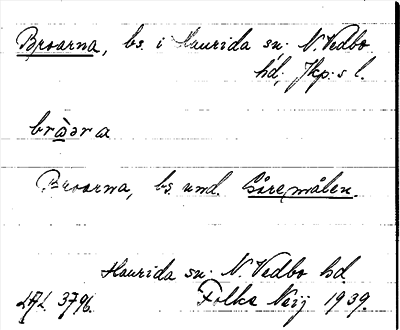 Broarna, bs. i Haurida sn. N. Vedbo
hd, Jkp:s l.
bròəra
Broarna, bs. und. Såremålen.
Haurida sn. N. Vedbo hd.
LAL 3796. Folke Neij 1939.